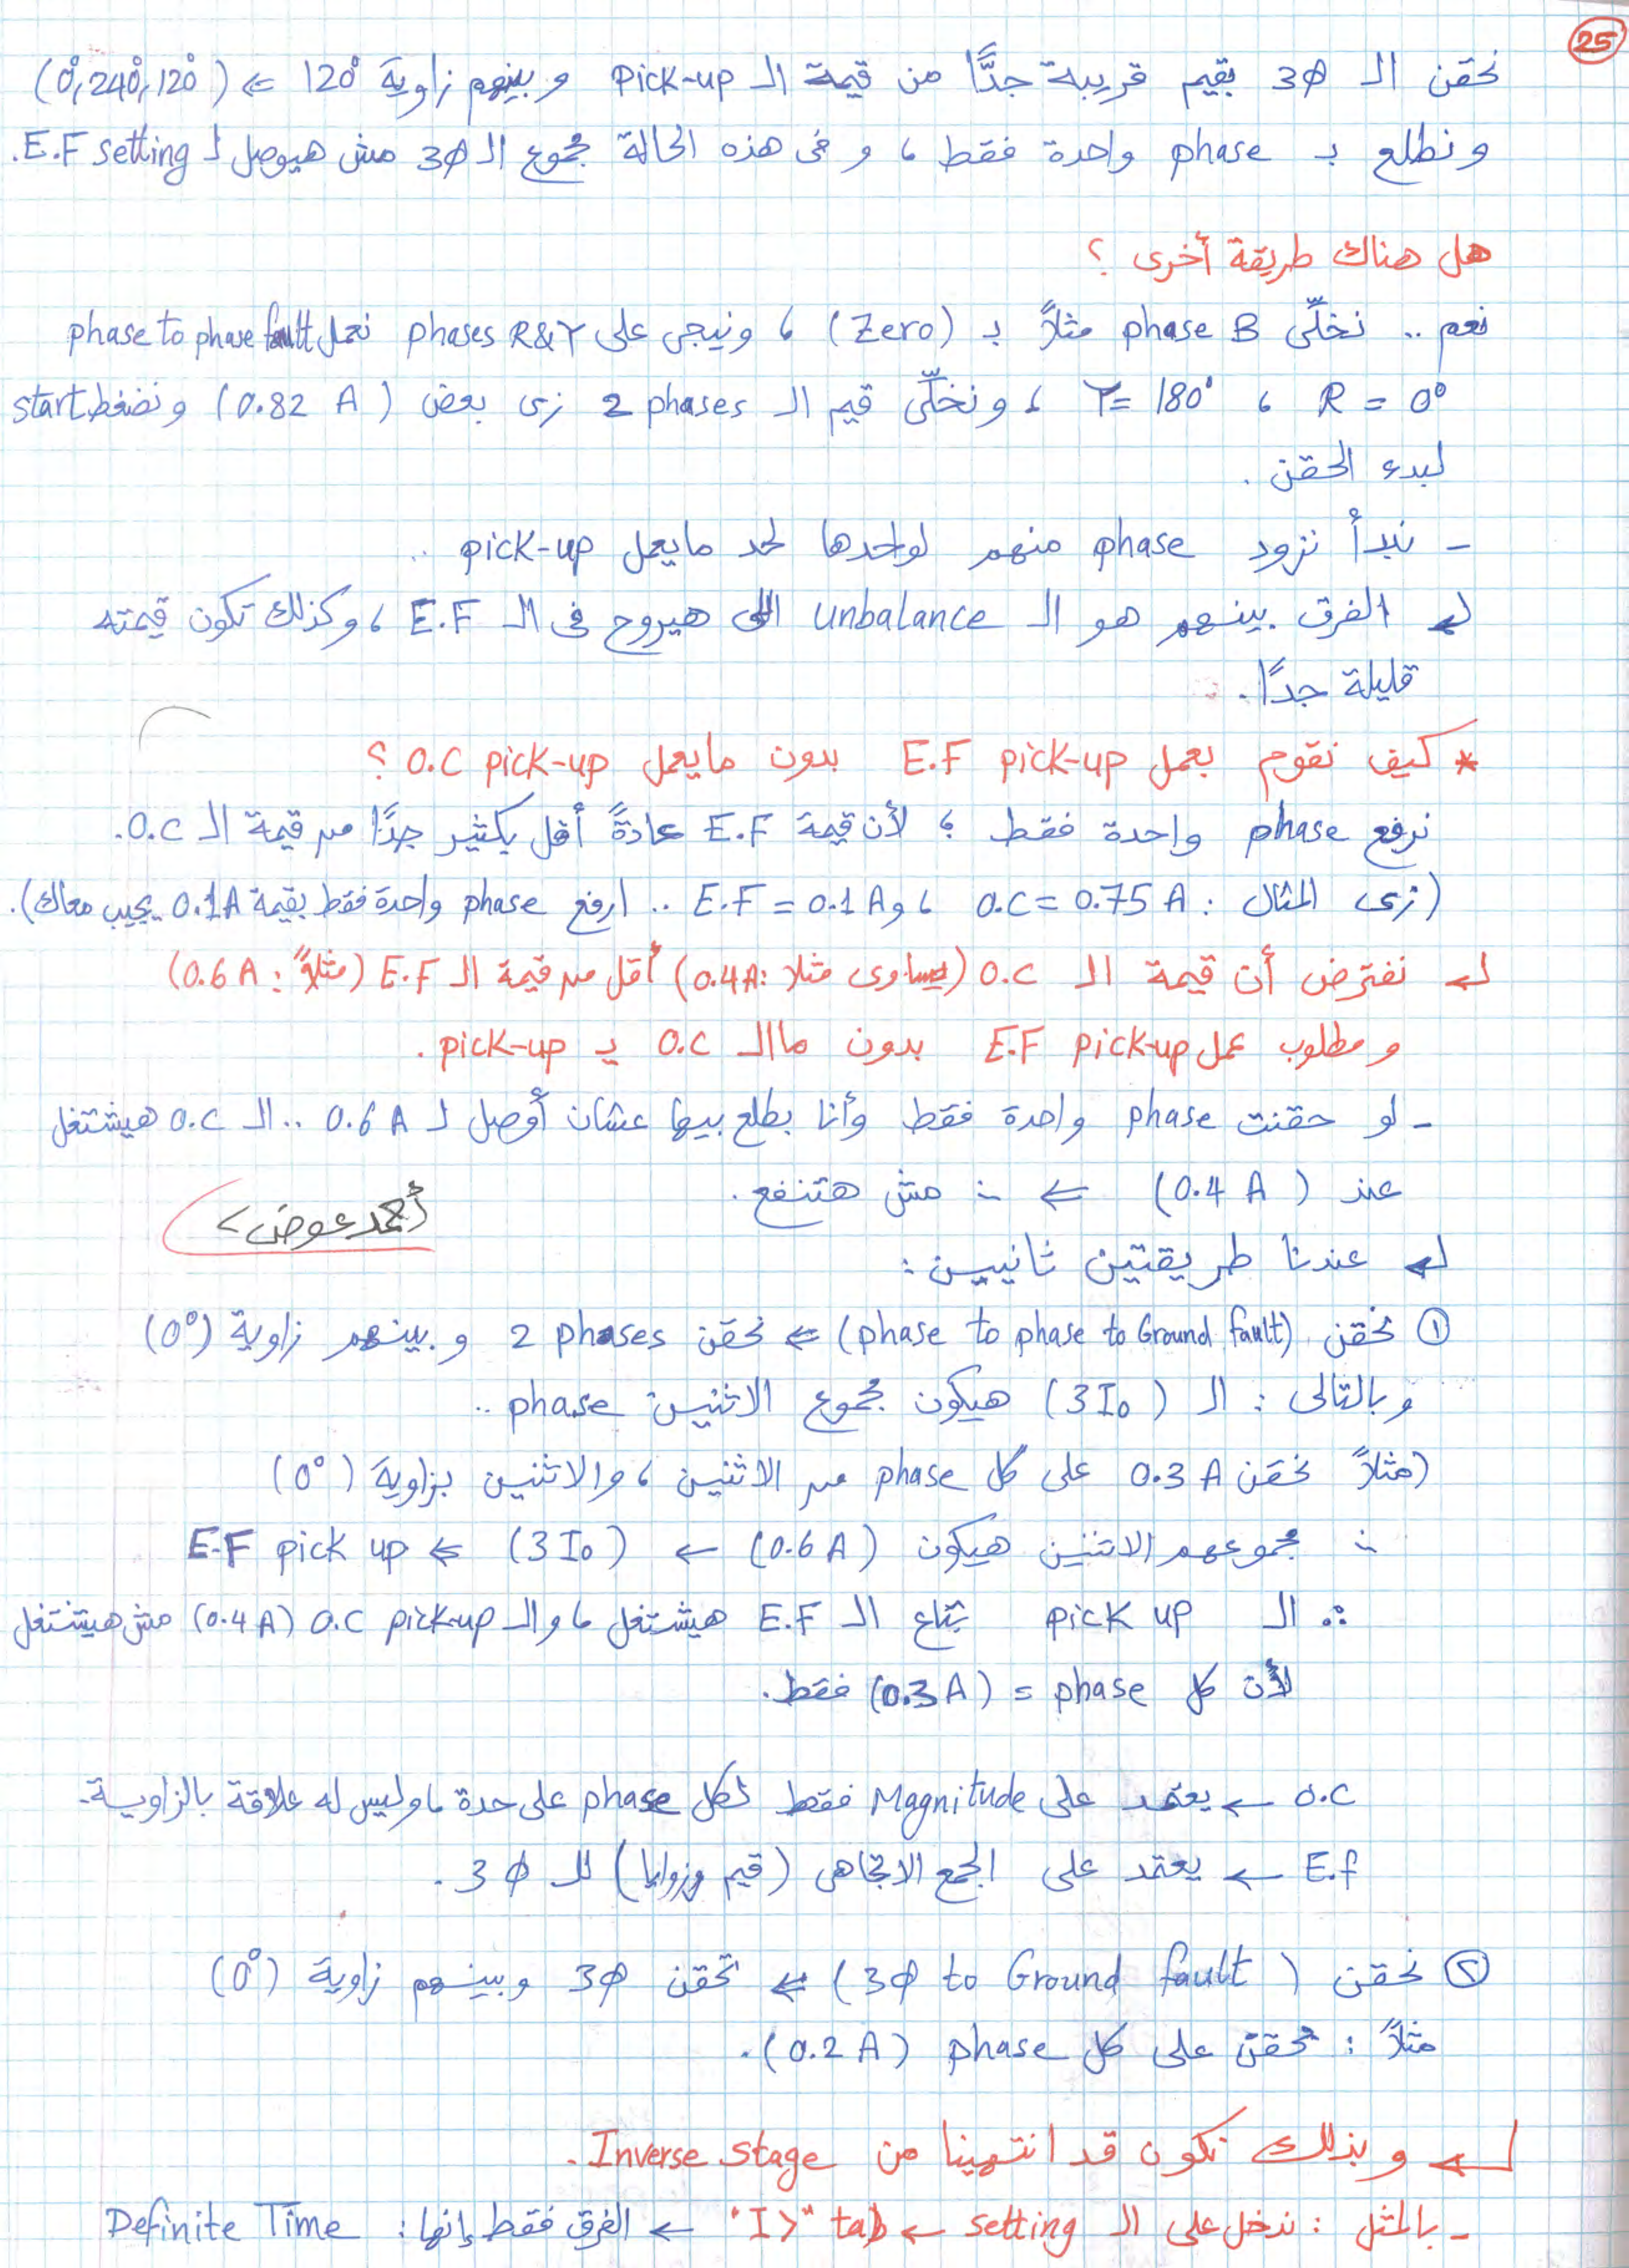 25
نحقن الـ 3Ø بقيم قريبة جدًّا من قيمة الـ Pick-up وبينهم زاوية 120° ⇐ (0°, 240°, 120°)
ونطلع بـ phase واحدة فقط ، و فى هذه الحالة مجموع الـ 3Ø مش هيوصل لـ E.F setting.
هل هناك طريقة أخرى ؟
نعم .. نخلّى phase B مثلاً بـ (Zero) ، ونيجى على phases R&Y نعمل phase to phase fault
R = 0° ، Y = 180° ، ونخلّى قيم الـ 2 phases زى بعض (0.82 A) ونضغط start
لبدء الحقن .
- نبدأ نزود phase منهم لواحدها لحد مايعمل pick-up ..
↵ الفرق بينهم هو الـ unbalance اللى هيروح فى الـ E.F ، وكذلك تكون قيمته
قليلة جدًا .
* كيف نقوم بعمل E.F pick-up بدون مايعمل O.C pick-up ؟
نرفع phase واحدة فقط ؛ لأن قيمة E.F عادةً أقل بكتير جدًا من قيمة الـ O.C.
(زى المثال : O.C = 0.75 A ، و E.F = 0.1 A .. ارفع phase واحدة فقط بقيمة 0.1A يجيب معاك).
↵ نفترض أن قيمة الـ O.C (يساوى مثلا :0.4A) أقل من قيمة الـ E.F (مثلاً : 0.6A)
ومطلوب عمل E.F pick-up بدون ماالـ O.C يـ pick-up .
- لو حقنت phase واحدة فقط وأنا بطلع بيها عشان أوصل لـ 0.6 A .. الـ O.C هيشتغل
عند (0.4 A) ⇐ ∴ مش هتنفع .
أحمد عوض
↵ عندنا طريقتين ثانيين :
① نحقن (phase to phase to Ground fault) ⇐ نحقن 2 phases وبينهم زاوية (0°)
وبالتالى : الـ (3I₀) هيكون مجموع الاثنين phase ..
(مثلاً نحقن 0.3 A على كل phase من الاثنين ، والاثنين بزاوية (0°)
∴ مجموعهم الاثنين هيكون (0.6A) ← (3I₀) ⇐ E.F pick up
∴ الـ pick up بتاع الـ E.F هيشتغل ، والـ O.C pick-up (0.4A) مش هيشتغل
لأن كل phase = (0.3A) فقط.
O.C ← يعتمد على Magnitude فقط لكل phase على حدة ، وليس له علاقة بالزاوية.
E.f ← يعتمد على الجمع الاتجاهى (قيم وزوايا) للـ 3Ø .
② نحقن (3Ø to Ground fault) ⇐ نحقن 3Ø وبينهم زاوية (0°)
مثلاً : نحقن على كل phase (0.2A) .
↵ وبذلك نكون قد انتهينا من Inverse stage .
- بالمثل : ندخل على الـ setting ← tab "I>" ← الفرق فقط إنها : Definite Time